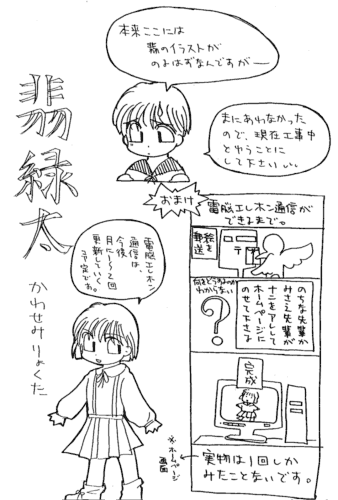 本来ここには
翡のイラストが
のるはずなんですがー
まにあわなかった
ので、現在工事中
とゆうことに
して下さいい。
翡緑太
かわせみ・りょくた
おまけ
電脳エレホン通信が
できるまで。
郵送
絵を
〒
何をどうするのか
わからない
?
のちな先輩か
みさえ先輩が
ナニをアレして
ホームページに
のせて下さる
完成
電脳エレホン
通信は
今後
月に1〜2回
更新していく
予定です。
※ホームページ
画面
実物は1回しか
みたことないです。